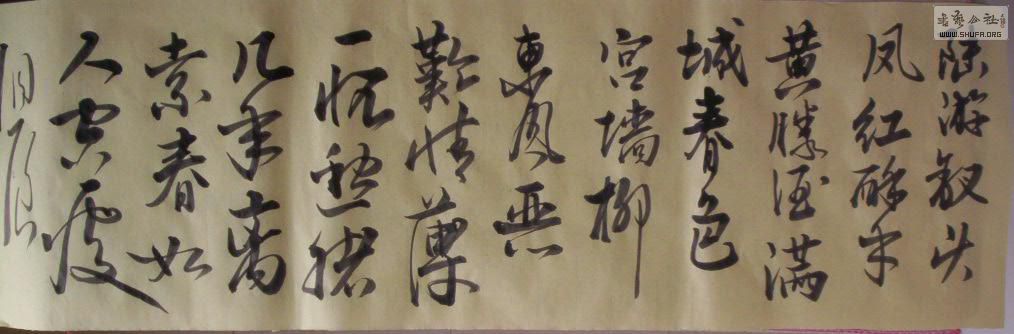 書藝公社
WWW.SHUFA.ORG
陸游钗头
凤红酥手
黄滕酒满
城春色
宫墙柳
東风恶
歡情薄
一怀愁绪
几年离
索春如
人空瘦